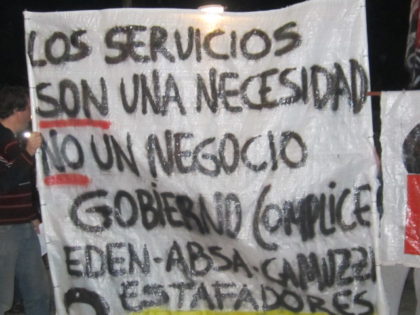 LOS SERVICIOS
SON UNA NECESIDAD
NO UN NEGOCIO
GOBIERNO COMPLICE
EDEN-ABSA-CAMUZZI
ESTAFADORES